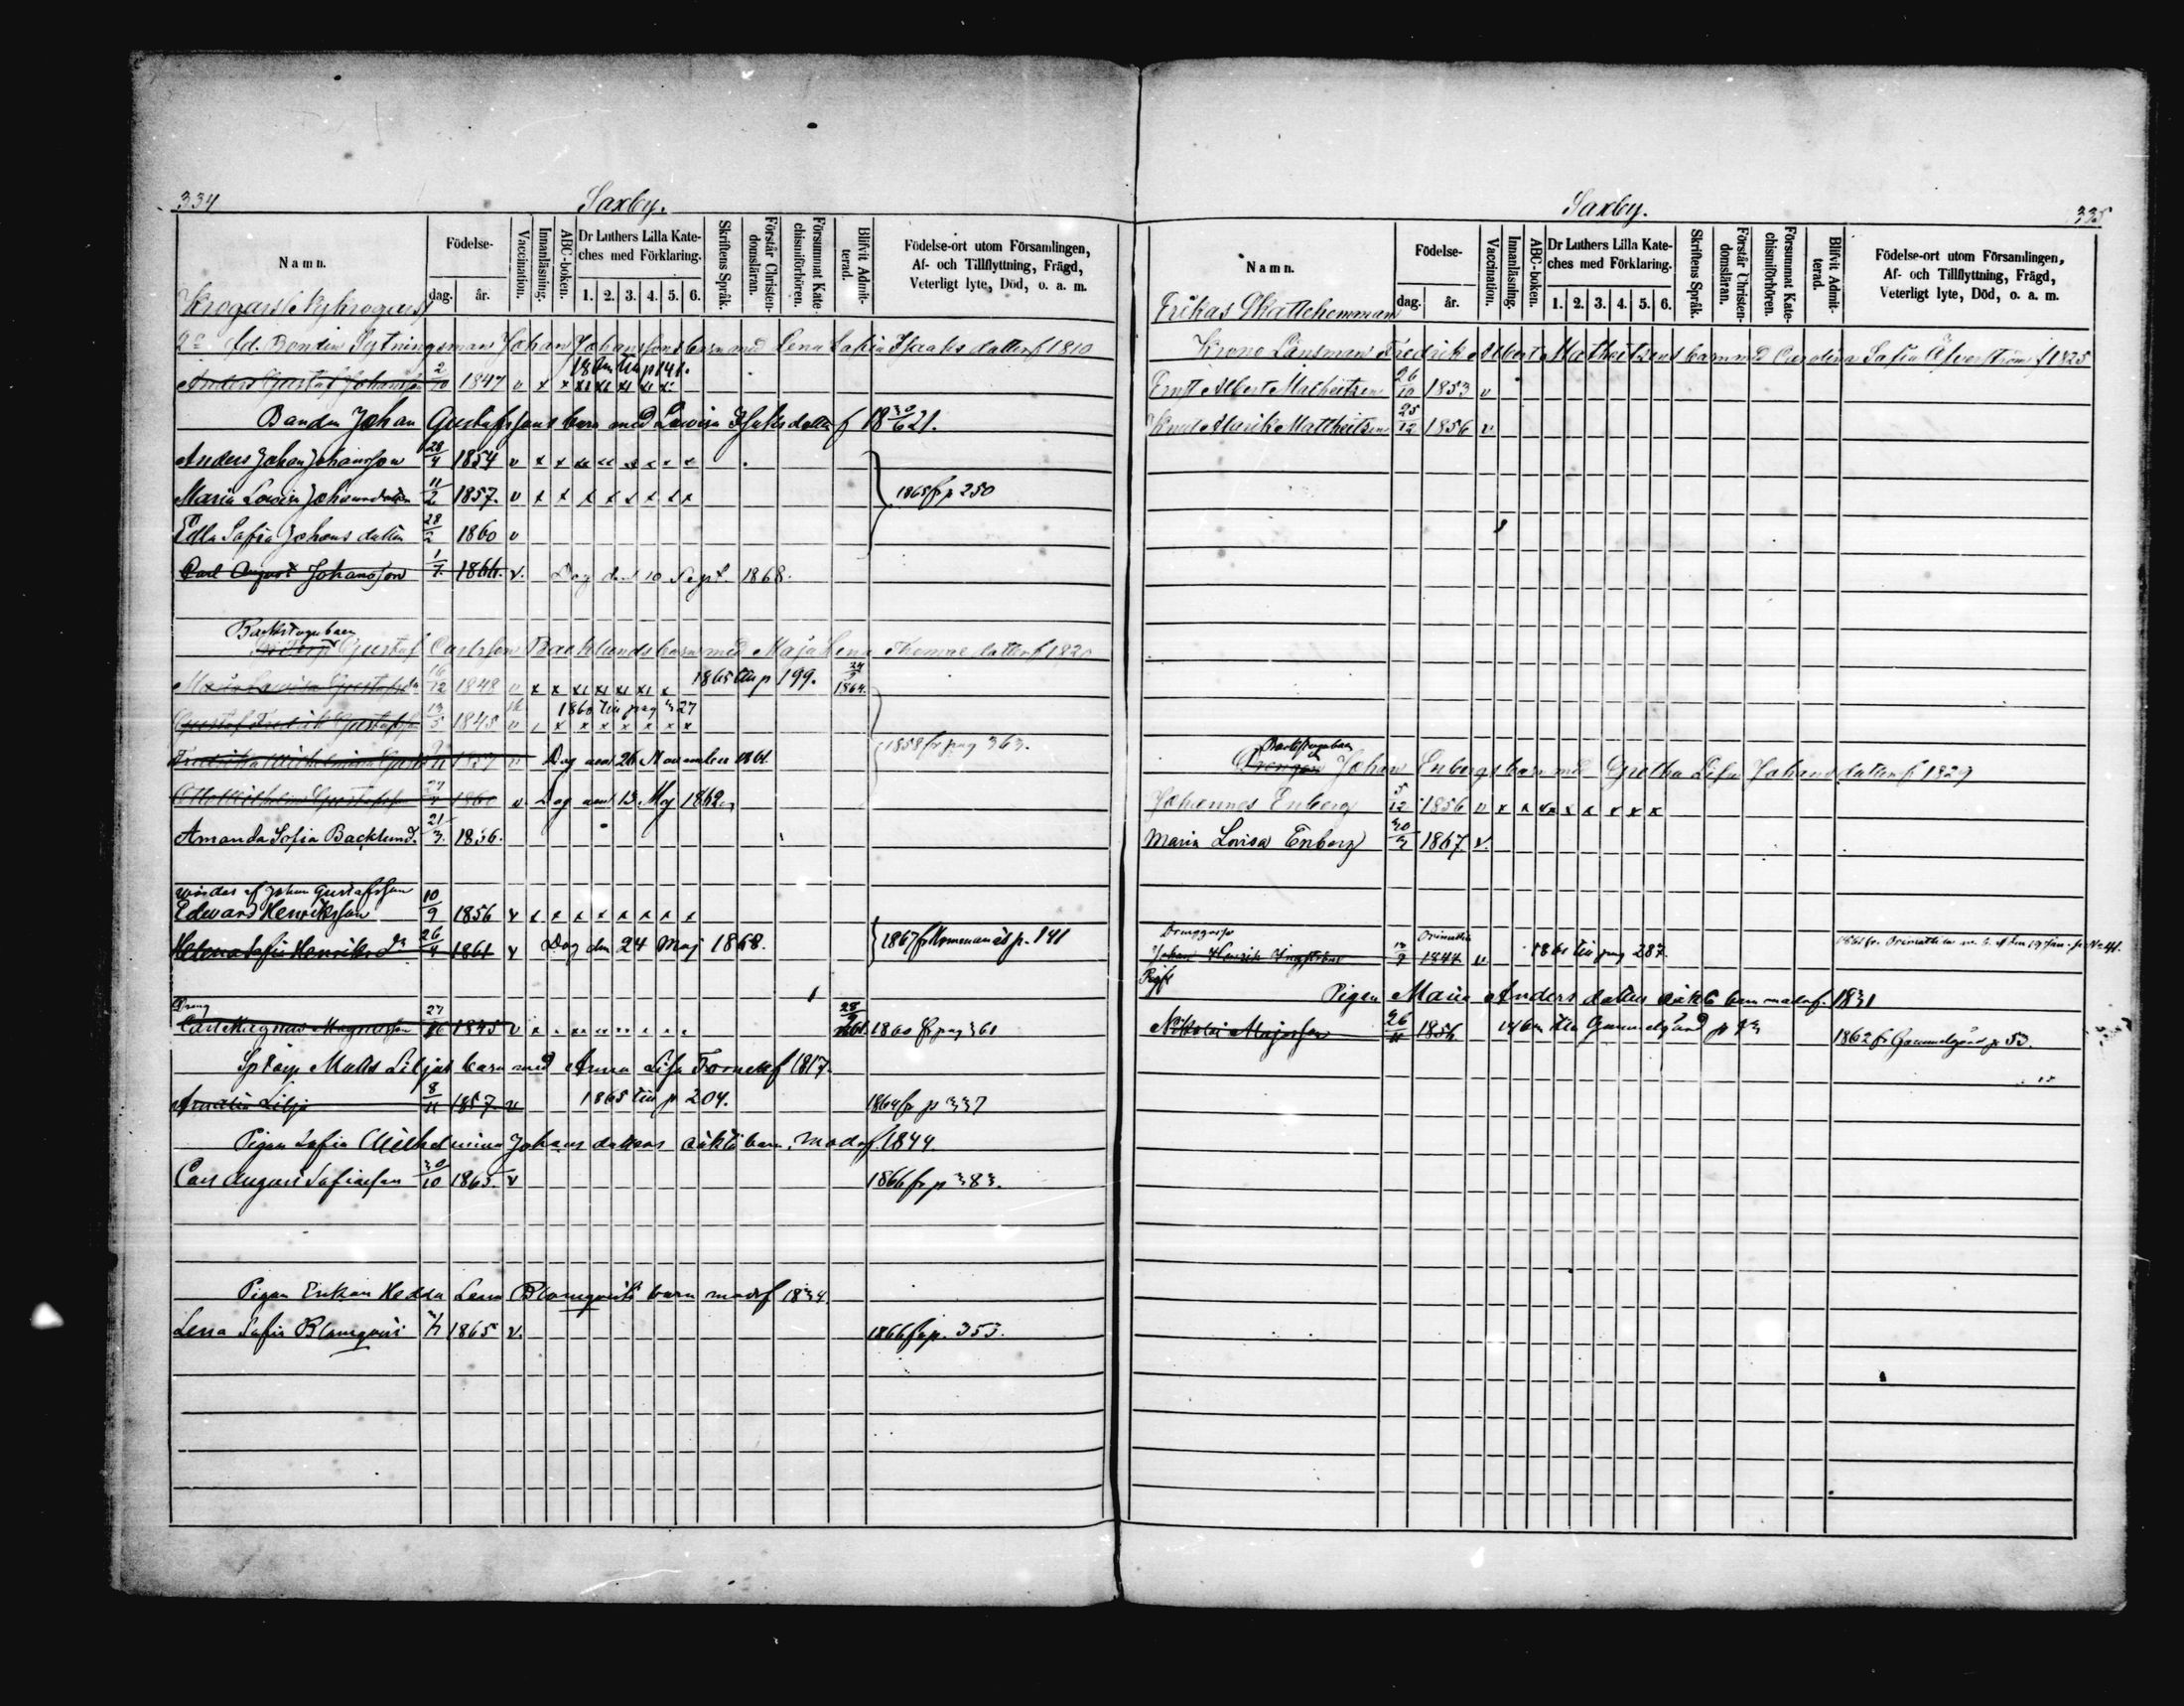 334
Saxby.
Namn.
Födelse-
dag.
år.
Vaccination.
Innanläsning.
ABC-boken.
Dr Luthers Lilla Kate-
ches med Förklaring.
1. 2. 3. 4. 5. 6.
Skriftens Språk.
Förstår Christen-
domsläran.
Försummat Kate-
chismiförhören.
Blifvit Admit-
terad.
Födelse-ort utom Församlingen,
Af- och Tillflyttning, Frägd,
Veterligt lyte, Död, o. a. m.
Johan Johanssons barn med Lena Sofia Isaksdatter f 1810
p 141.
Anders Gustaf Johansson 2/10 1847 v x x
Bonden Johan Gustafssons barn med Lovisa Isaksdatter f 18 30/6 21.
Anders Johan Johansson 28/4 1854 v x x
Maria Lovisa Johansdatter 11/2 1857. v x x x x x x x x
1865 fr p 250
Edla Sofia Johansdatter 28/2 1860 v
Carl August Johansson 1/7 1866. v. Dog den 10 Sept. 1868.
Backstugubarn
Gustaf Carlsson Backlunds barn med Maja Lena Thomasdatter f 1820
1865 till p 199.
Maja Lovisa Gustafsd 16/12 1848 v x x 24/ 1864.
1860 till pag 327
Gustaf Fredrik Gustafsson 13/5 1845 v
1858 fr pag 363.
Fredrika Wilhelmina 1857 v Dog den 26 November 1861.
Otto Wilhelm Gustafsson 1860 v Dog den 13 Maj 1862
Amanda Sofia Backlund. 21/3. 1856.
Johan Gustafsson
Edvard Henriksson 10/9 1856 v x x x x x x x x
Helena Sofia Henriksdr 26/4 1861 v Dog den 24 Maj 1868.
1867 fr p. 141
Dreng
Carl Magnus Magnusson 27/10 1845 v 28/ 1861 1860 fr pag 361
Matts Liljas barn med Anna Lisa f 1817.
Amalia Lilja 8/11 1857. v 1865 till p 204. 1864 fr p 337
Pigan Sofia Wilhelmina Johansdatters oäkta barn, modr f. 1844.
Carl August Sofiasson 30/10 1865. v 1866 fr p 383.
Pigan Enkan Hedda Lena Blomqvists barn modr f 1834.
Lena Sofia Blomqvist 1865 v. 1866 fr p. 353.
Saxby.
335
Namn.
Födelse-
dag.
år.
Vaccination.
Innanläsning.
ABC-boken.
Dr Luthers Lilla Kate-
ches med Förklaring.
1. 2. 3. 4. 5. 6.
Skriftens Språk.
Förstår Christen-
domsläran.
Försummat Kate-
chismiförhören.
Blifvit Admit-
terad.
Födelse-ort utom Församlingen,
Af- och Tillflyttning, Frägd,
Veterligt lyte, Död, o. a. m.
Erikas Skattehemman
Krono Länsman Fredrik Albert Matheitzens barn med Carolina Sofia f 1825
Ernst Albert Matheitzen 26/10 1853 v
Knut Alarik Mattheitzen 25/12 1856 v
Backstugubarn
Drengen Johan Enbergs barn med Gretha Lisa Johansdatter f 1829
Johannes Enberg 5/12 1856 v x x x x x x x
Maria Lovisa Enberg 30/3 1867. v.
Johan Henrik 1847 v 1861 till pag 287.
Pigan Maria Andersdatters oäkta barn modr f. 1831
Nikolai 26/11 1854. till Gammelgård p 1862 fr Gammelgård p 53.